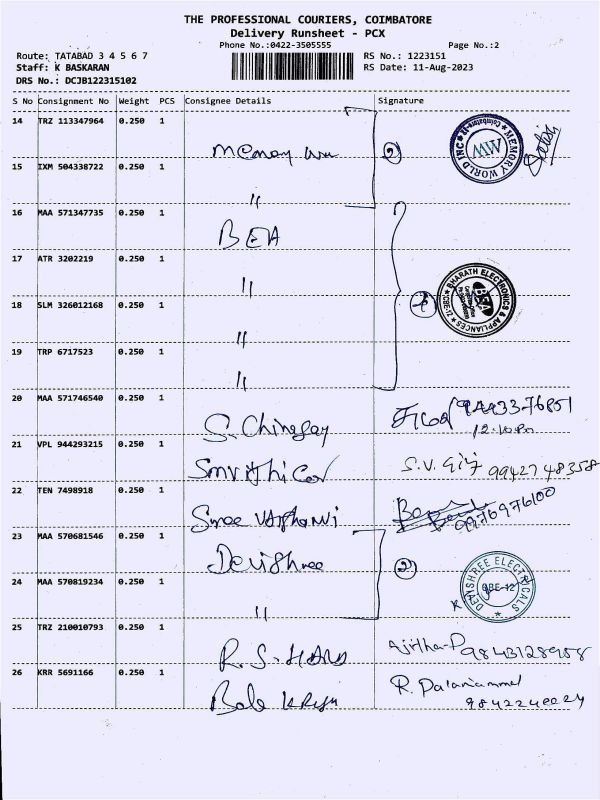 THE PROFESSIONAL COURIERS, COIMBATORE
Delivery Runsheet - PCX
Phone No.:0422-3505555
Page No.:2
Route: TATABAD 3 4 5 6 7
Staff: K BASKARAN
DRS No.: DCJB122315102
RS No.: 1223151
RS Date: 11-Aug-2023
S No Consignment No Weight PCS Consignee Details Signature
14 TRZ 113347964 0.250 1
15 IXM 504338722 0.250 1
"
16 MAA 571347735 0.250 1
BEA
17 ATR 3202219 0.250 1
"
18 SLM 326012168 0.250 1
"
19 TRP 6717523 0.250 1
"
MEMORY WORLD INC
MW
BHARATH ELECTRONICS & APPLIANCES
BEA
20 MAA 571746540 0.250 1
S.
12.10 Pm
21 VPL 944293215 0.250 1
S.V. Giri 9942748358
22 TEN 7498918 0.250 1
Sree Vaishnavi
9976976100
23 MAA 570681546 0.250 1
Devishree
2
24 MAA 570819234 0.250 1
"
DEVISHREE ELECTRICALS
CBE-12
25 TRZ 210010793 0.250 1
R.S.
Ajitha.P 9843128958
26 KRR 5691166 0.250 1
R. Palaniammal